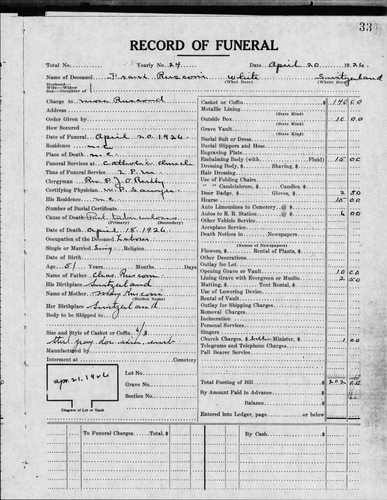 33
RECORD OF FUNERAL
Total No. Yearly No. 24 Date April 20 1926
Name of Deceased Frank Rusconi White Switzerland
(What Race) (Where Born)
Husband
Wife—Widow of
Son—Daughter
Charge to
Address
Order Given by
How Secured
Date of Funeral April 20, 1926
Residence M.C.
Place of Death M.C.
Funeral Services at Catholic Church
Time of Funeral Service 2 P.M.
Clergyman Rev. P. J. O'Reilly
Certifying Physician
His Residence M.C.
Number of Burial Certificate
Cause of Death Pul. tuberculosis
(Primary) (Secondary)
Date of Death April 18, 1926
Occupation of the Deceased Labor
Single or Married Sing Religion
Date of Birth
Age 51 Years Months Days
Name of Father Chas Rusconi
His Birthplace Switzerland
Name of Mother Mary Rusconi
(Maiden Name)
Her Birthplace Switzerland
Body to be Shipped to
Size and Style of Casket or Coffin 6/3
Manufactured by
Interment at Cemetery
Lot No.
Grave No.
Section No.
Apr. 21, 1926
Diagram of Lot or Vault
Casket or Coffin $ 140 00
Metallic Lining
(State Kind)
Outside Box 10 00
(State Kind)
Grave Vault
(State Kind)
Burial Suit or Dress
Burial Slippers and Hose
Engraving Plate
Embalming Body (with Fluid) 15 00
Dressing Body, $ Shaving, $
Hair Dressing
Use of Folding Chairs
" " Candelabrum, $ Candles, $
Door Badge, $ Gloves, $ 2 50
Hearse 15 00
Auto Limousines to Cemetery @ $
Autos to R. R. Station @ $ 6 00
Other Vehicle Service
Aeroplane Service
Death Notices in Newspapers
(Names of Newspapers)
Flowers, $ Rental of Plants, $
Other Decorations
Outlay for Lot
Opening Grave or Vault 10 00
Lining Grave with Evergreen or Muslin 2 50
Matting, $ Tent Rental, $
Use of Lowering Device
Rental of Vault
Outlay for Shipping Charges
Removal Charges
Incineration
Personal Services
Singers
Church Charges, $ Minister, $ 1 00
Telegrams and Telephone Charges
Pall Bearer Service
Total Footing of Bill $ 202 00
By Amount Paid in Advance $
Balance $
Entered into Ledger, page or below $
To Funeral Charges Total, $
By Cash $